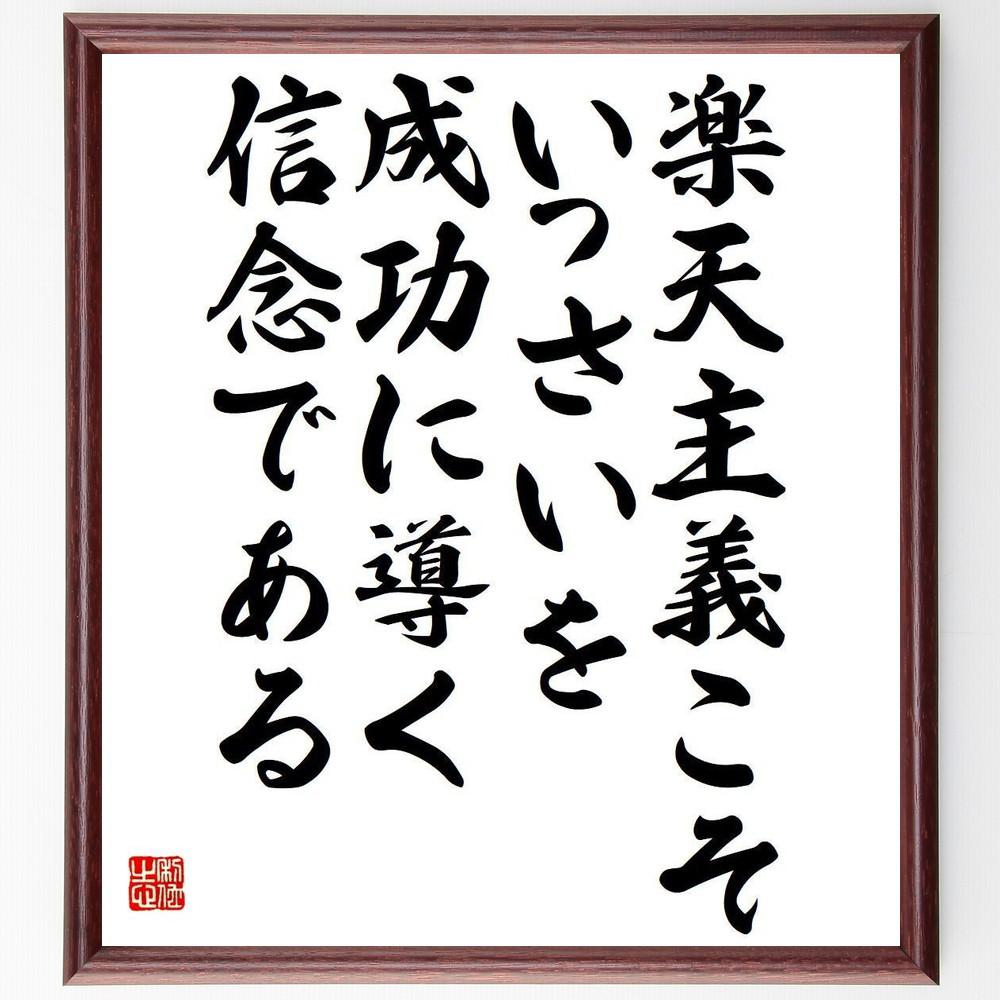 楽天主義こそ
いっさいを
成功に導く
信念である